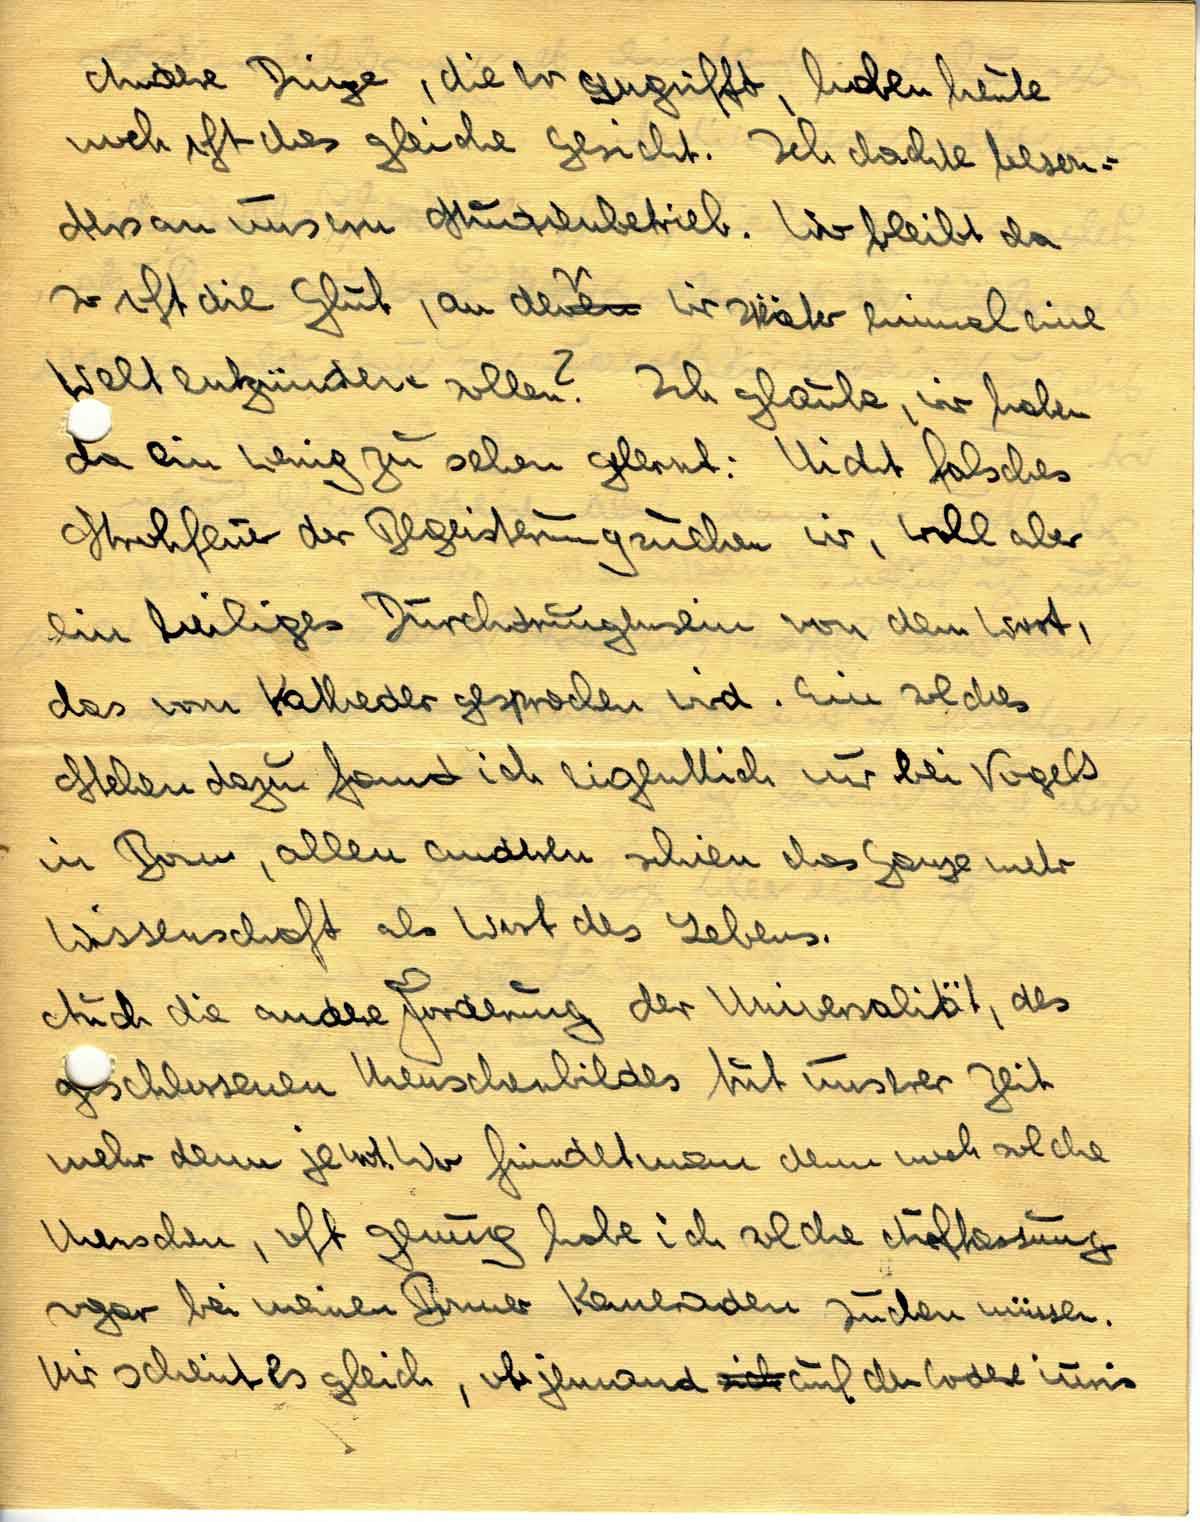 Andere Dinge, die er angrifft, haben heute
noch oft das gleiche Gesicht. Ich dachte beson-
ders an unsern Studienbetrieb. Wo bleibt da
so oft die Glut, an der wir später einmal eine
Welt entzünden sollen? Ich glaube, wir haben
da ein wenig zu sehen gelernt: Nicht falsches
Strohfeuer der Begeisterung suchen wir, wohl aber
ein heiliges Durchdrungensein von dem Wort,
das vom Katheder gesprochen wird. Ein solches
Stehen dazu fand ich eigentlich nur bei Vogels
in Bonn, allen anderen schien das Ganze mehr
Wissenschaft als Wort des Lebens.
Auch die andere Forderung der Universalität, des
geschlossenen Menschenbildes tut unsrer Zeit
mehr denn je not. Wo findet man denn noch solche
Menschen, oft genug habe ich solche Auffassung
sogar bei meinen Bonner Kameraden suchen müssen.
Mir scheint es gleich, ob jemand auf den